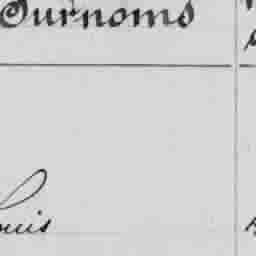 Surnoms
ouis